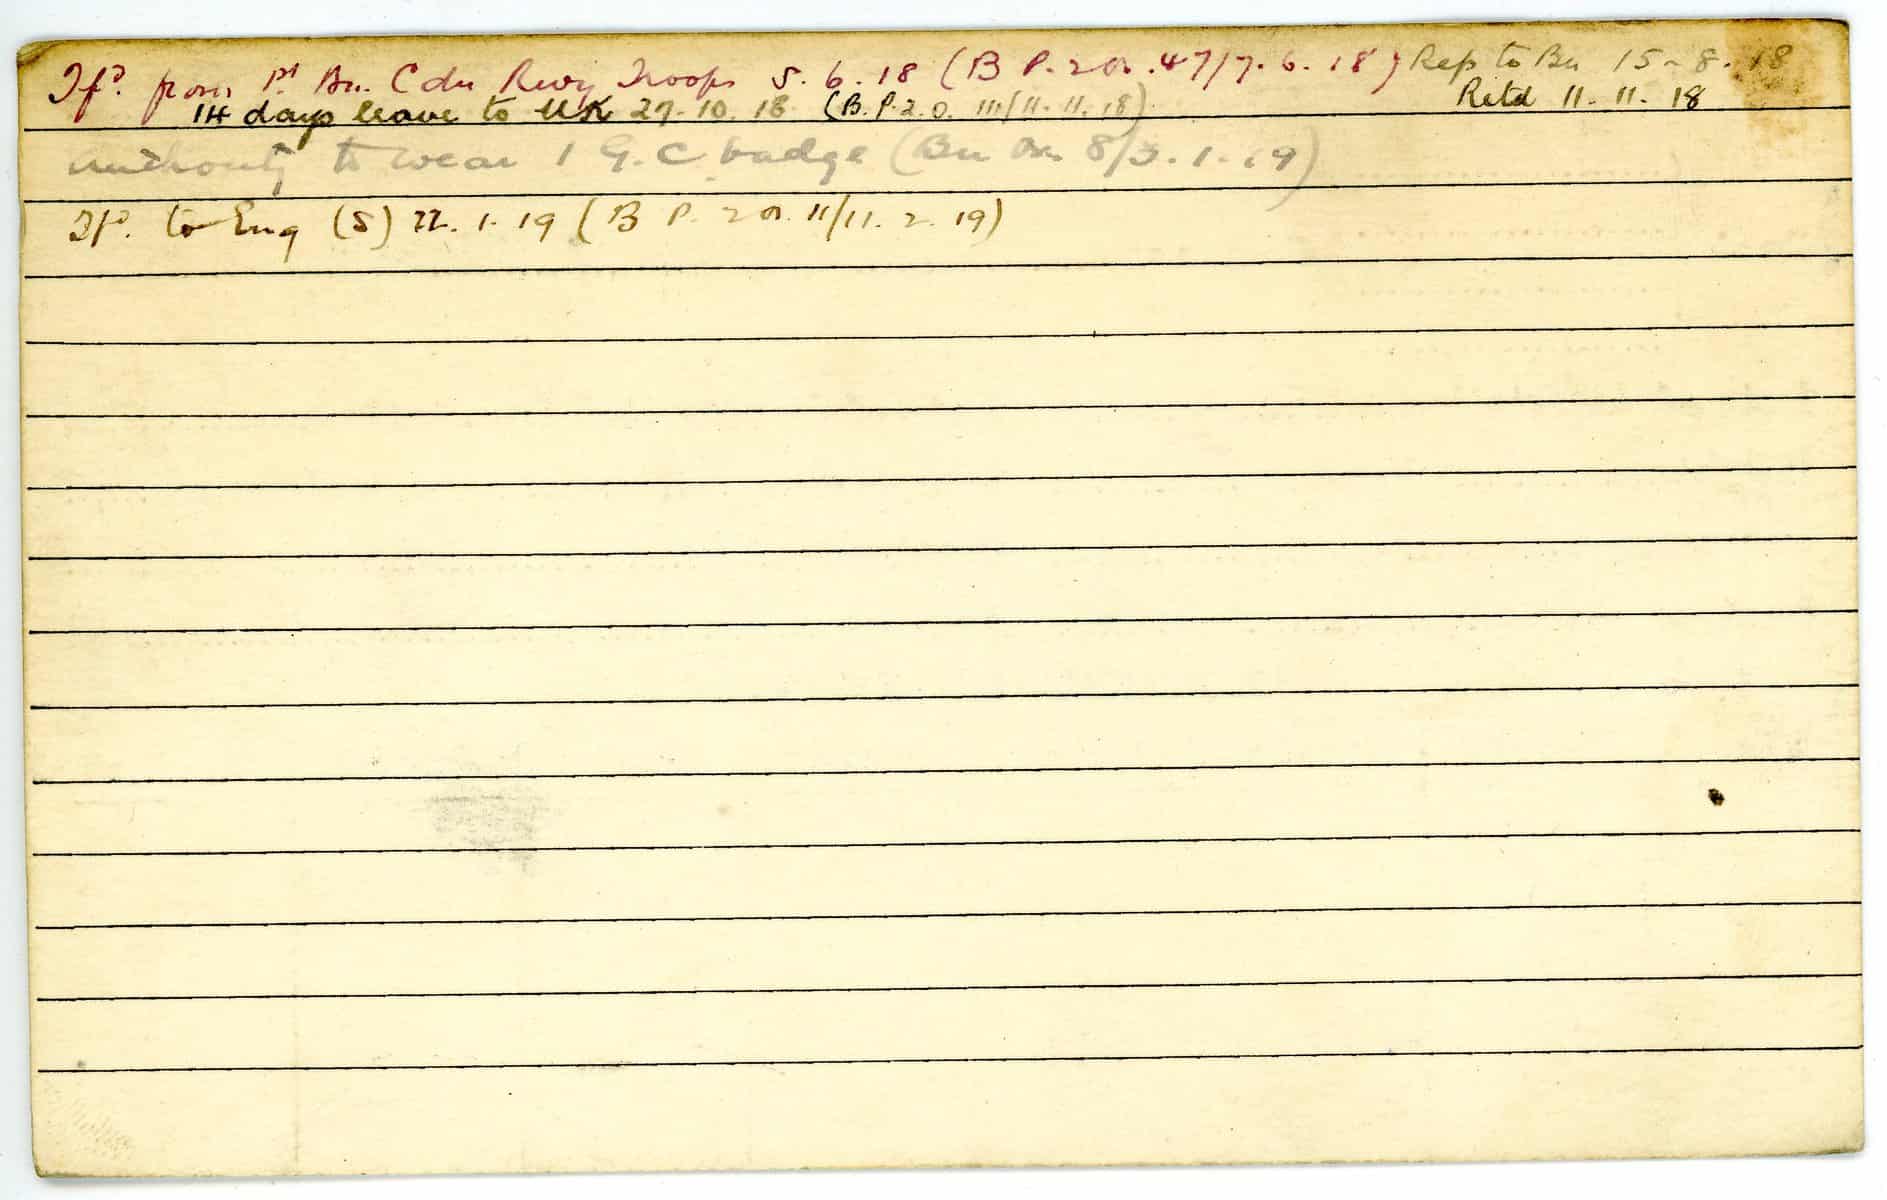 Tfd. from 1st Bn. Cdn Rwy Troops 5.6.18 (B P. 2 Or. 47/7.6.18) Rep to Bn 15-8-18
14 days leave to UK 27.10.18 (B.P.2.O. 111/11.11.18) Retd 11.11.18
Authority to wear 1 G.C badge (Bn Or. 8/3.1.19)
Tfd. to Eng (S) 22.1.19 (B P. 2 Or. 11/11.2.19)